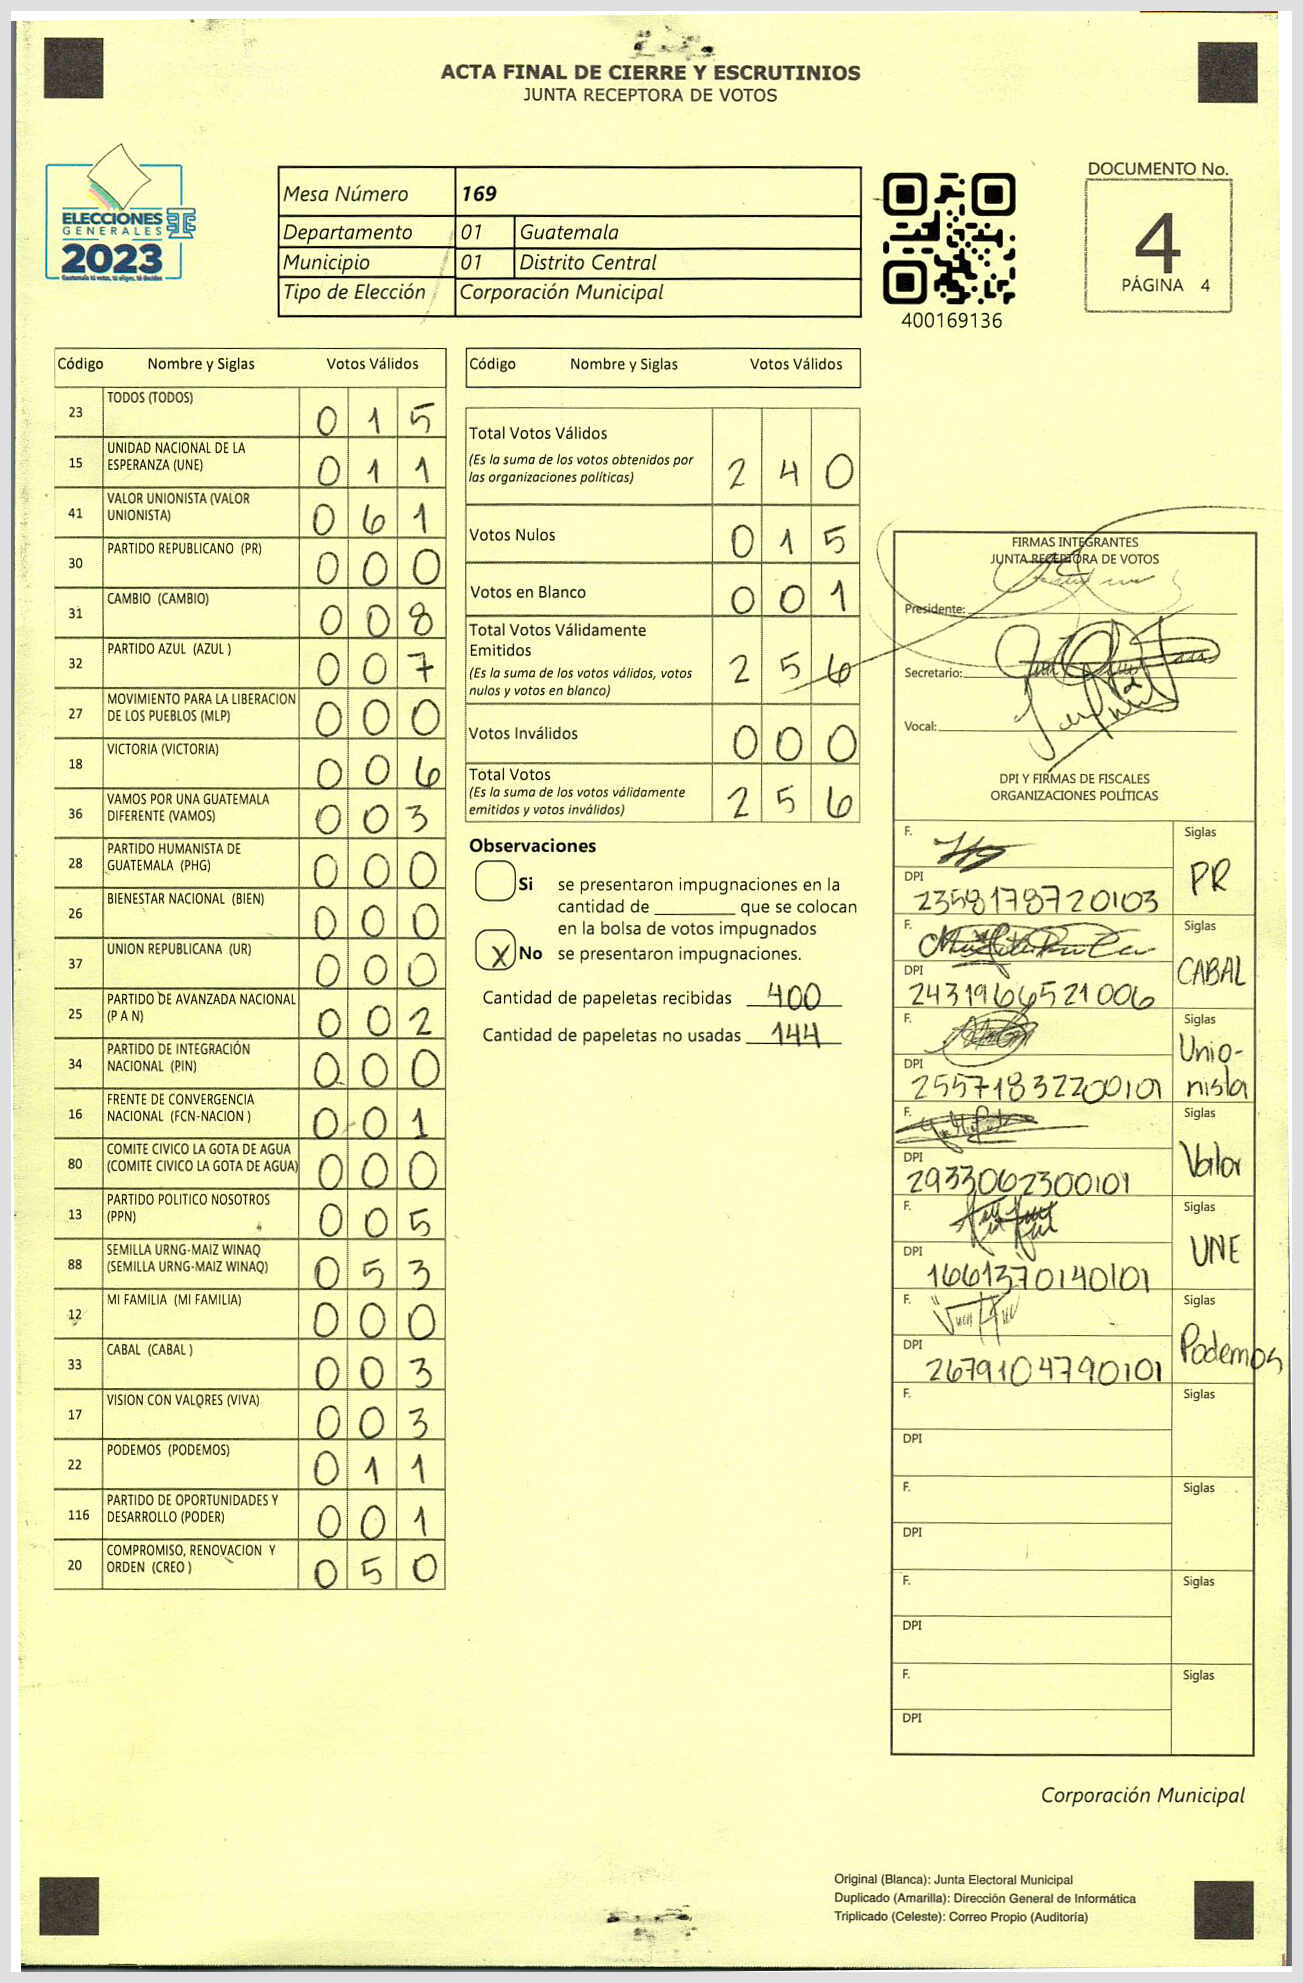 ACTA FINAL DE CIERRE Y ESCRUTINIOS
JUNTA RECEPTORA DE VOTOS
ELECCIONES
GENERALES
2023
Mesa Número 169
Departamento 01 Guatemala
Municipio 01 Distrito Central
Tipo de Elección Corporación Municipal
400169136
DOCUMENTO No.
4
PÁGINA 4
Código Nombre y Siglas Votos Válidos
23 TODOS (TODOS) 0 1 5
15 UNIDAD NACIONAL DE LA
ESPERANZA (UNE) 0 1 1
41 VALOR UNIONISTA (VALOR
UNIONISTA) 0 6 1
30 PARTIDO REPUBLICANO (PR) 0 0 0
31 CAMBIO (CAMBIO) 0 0 8
32 PARTIDO AZUL (AZUL ) 0 0 7
27 MOVIMIENTO PARA LA LIBERACION
DE LOS PUEBLOS (MLP) 0 0 0
18 VICTORIA (VICTORIA) 0 0 6
36 VAMOS POR UNA GUATEMALA
DIFERENTE (VAMOS) 0 0 3
28 PARTIDO HUMANISTA DE
GUATEMALA (PHG) 0 0 0
26 BIENESTAR NACIONAL (BIEN) 0 0 0
37 UNION REPUBLICANA (UR) 0 0 0
25 PARTIDO DE AVANZADA NACIONAL
(P A N) 0 0 2
34 PARTIDO DE INTEGRACIÓN
NACIONAL (PIN) 0 0 0
16 FRENTE DE CONVERGENCIA
NACIONAL (FCN-NACION ) 0 0 1
80 COMITE CIVICO LA GOTA DE AGUA
(COMITE CIVICO LA GOTA DE AGUA) 0 0 0
13 PARTIDO POLITICO NOSOTROS
(PPN) 0 0 5
88 SEMILLA URNG-MAIZ WINAQ
(SEMILLA URNG-MAIZ WINAQ) 0 5 3
12 MI FAMILIA (MI FAMILIA) 0 0 0
33 CABAL (CABAL ) 0 0 3
17 VISION CON VALORES (VIVA) 0 0 3
22 PODEMOS (PODEMOS) 0 1 1
116 PARTIDO DE OPORTUNIDADES Y
DESARROLLO (PODER) 0 0 1
20 COMPROMISO, RENOVACION Y
ORDEN (CREO ) 0 5 0
Código Nombre y Siglas Votos Válidos
Total Votos Válidos
(Es la suma de los votos obtenidos por
las organizaciones políticas) 2 4 0
Votos Nulos 0 1 5
Votos en Blanco 0 0 1
Total Votos Válidamente
Emitidos
(Es la suma de los votos válidos, votos
nulos y votos en blanco) 2 5 6
Votos Inválidos 0 0 0
Total Votos
(Es la suma de los votos válidamente
emitidos y votos inválidos) 2 5 6
Observaciones
Si se presentaron impugnaciones en la
cantidad de ________ que se colocan
en la bolsa de votos impugnados
X No se presentaron impugnaciones.
Cantidad de papeletas recibidas 400
Cantidad de papeletas no usadas 144
FIRMAS INTEGRANTES
JUNTA RECEPTORA DE VOTOS
Presidente:
Secretario:
Vocal:
DPI Y FIRMAS DE FISCALES
ORGANIZACIONES POLÍTICAS
F. Siglas
DPI 2358178720103 PR
F. Siglas
DPI 2431966521006 CABAL
F. Siglas
DPI 2557183220101 Unio-
nista
F. Siglas
DPI 2933062300101 Valor
F. Siglas
DPI 1661370140101 UNE
F. Siglas
DPI 2679104790101 Podemos
F. Siglas
DPI
F. Siglas
DPI
F. Siglas
DPI
F. Siglas
DPI
Corporación Municipal
Original (Blanca): Junta Electoral Municipal
Duplicado (Amarilla): Dirección General de Informática
Triplicado (Celeste): Correo Propio (Auditoría)